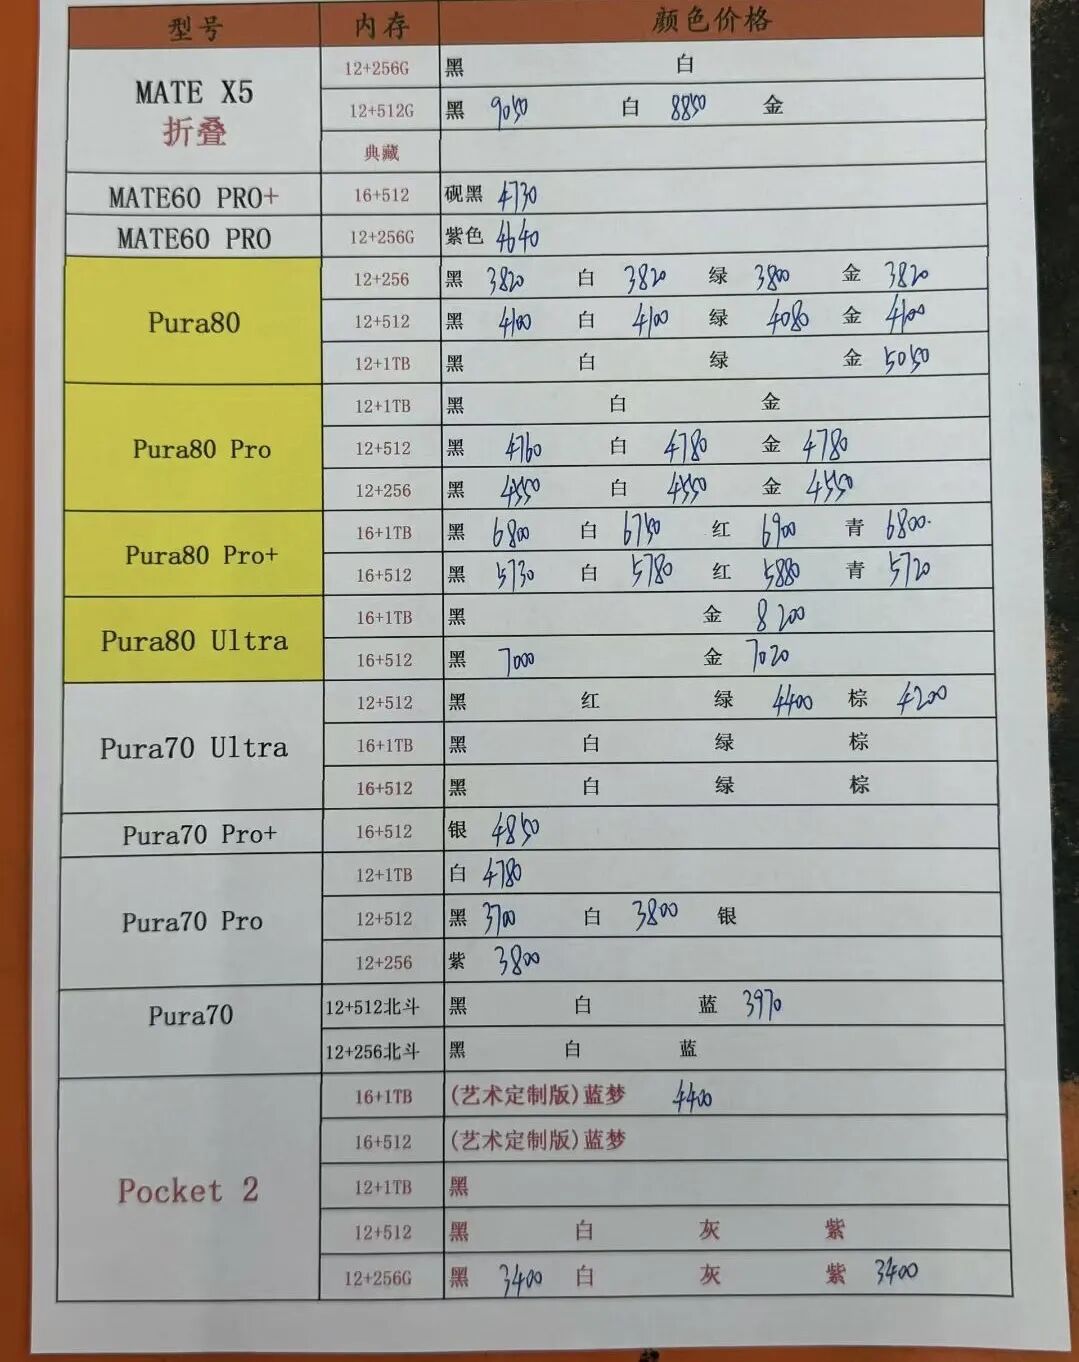 型号 内存 颜色价格
MATE X5 折叠 12+256G 黑 白
12+512G 黑 9050 白 8850 金
典藏
MATE60 PRO+ 16+512 砚黑 4730
MATE60 PRO 12+256G 紫色 4640
Pura80 12+256 黑 3820 白 3820 绿 3800 金 3820
12+512 黑 4100 白 4100 绿 4080 金 4100
12+1TB 黑 白 绿 金 5050
Pura80 Pro 12+1TB 黑 白 金
12+512 黑 4760 白 4780 金 4780
12+256 黑 4550 白 4550 金 4550
Pura80 Pro+ 16+1TB 黑 6800 白 6750 红 6900 青 6800
16+512 黑 5730 白 5780 红 5880 青 5720
Pura80 Ultra 16+1TB 黑 金 8200
16+512 黑 7000 金 7020
Pura70 Ultra 12+512 黑 红 绿 4400 棕 4200
16+1TB 黑 白 绿 棕
16+512 黑 白 绿 棕
Pura70 Pro+ 16+512 银 4850
Pura70 Pro 12+1TB 白 4780
12+512 黑 3700 白 3800 银
12+256 紫 3800
Pura70 12+512北斗 黑 白 蓝 3970
12+256北斗 黑 白 蓝
Pocket 2 16+1TB (艺术定制版)蓝梦 4400
16+512 (艺术定制版)蓝梦
12+1TB 黑
12+512 黑 白 灰 紫
12+256G 黑 3400 白 灰 紫 3400